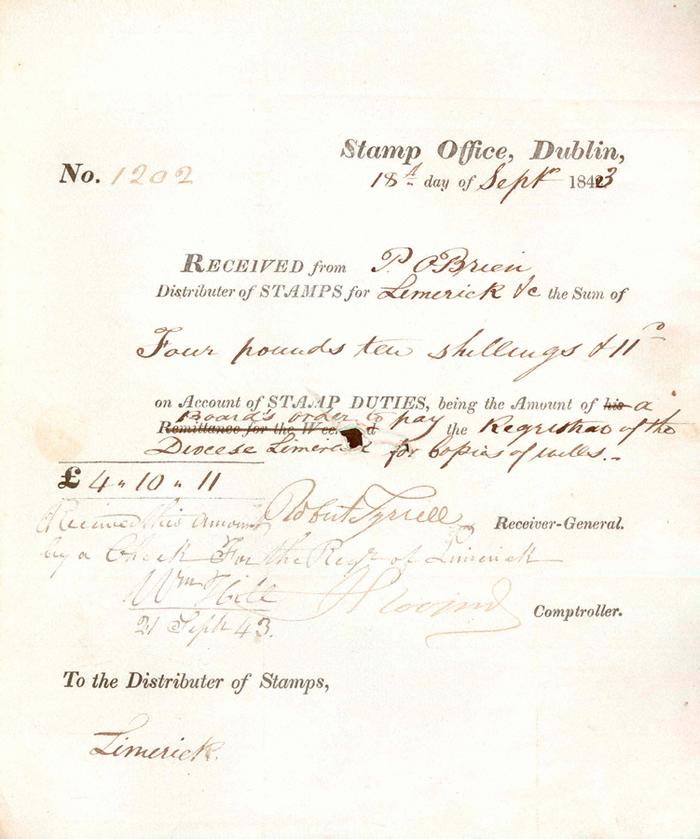 Stamp Office, Dublin,
No. 1202
18th day of Septr 1843
RECEIVED from P. O'Brien
Distributer of STAMPS for Limerick &c the Sum of
Four pounds ten shillings & 11d
on Account of STAMP DUTIES, being the Amount of his a
Board's order to pay
Remittance for the Week the Registrar of the
Diocese Limerick for copies of wills.
£ 4 " 10 " 11
Received this amount Robert Tyrrell Receiver-General.
by a Check For the Regr of Limerick
Wm Hill
Comptroller.
21 Sept 43.
To the Distributer of Stamps,
Limerick.